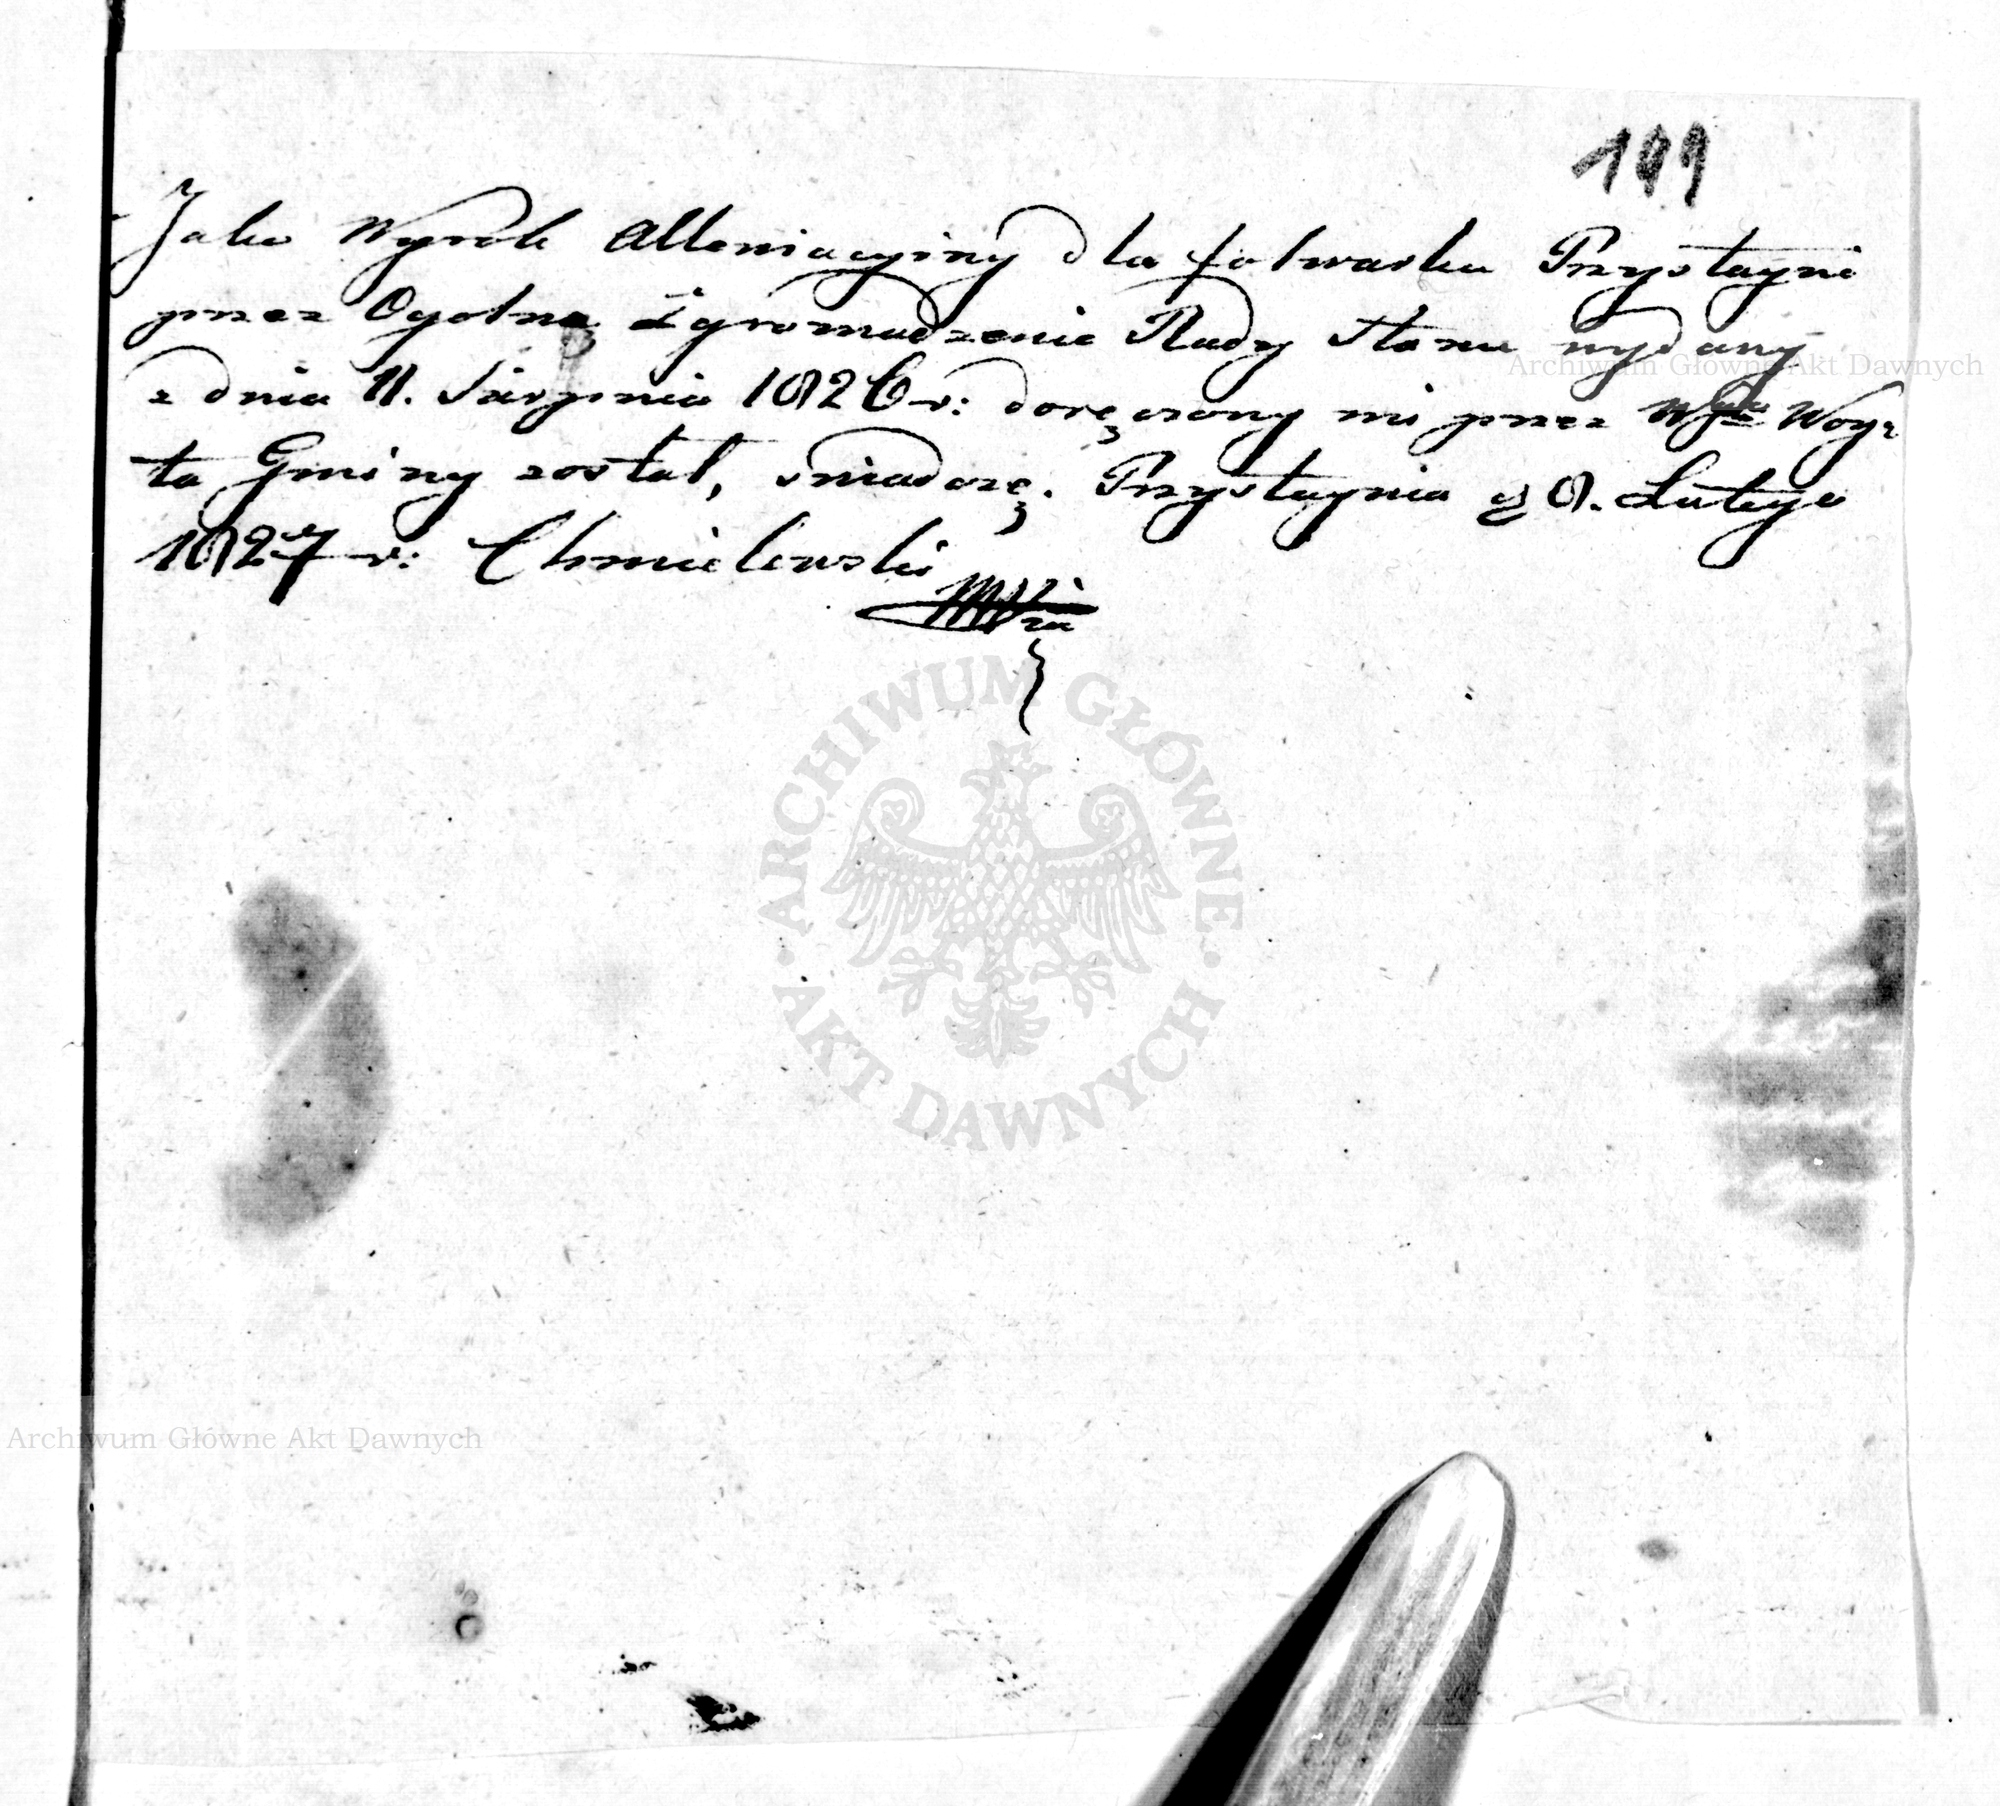 199
Jako Wyrok Allewiacyiny dla folwarku Przystayni
przez Ogolne Zgromadzenie Rady Stanu wydany
z dnia 11. Sierpnia 1826 r: doręczony mi przez Woy-
ta Gminy został, swiadczę. Przystaynia d 8. Lutego
1827 r: Chmielewski
ARCHIWUM GŁÓWNE AKT DAWNYCH
Archiwum Główne Akt Dawnych
Archiwum Główne Akt Dawnych